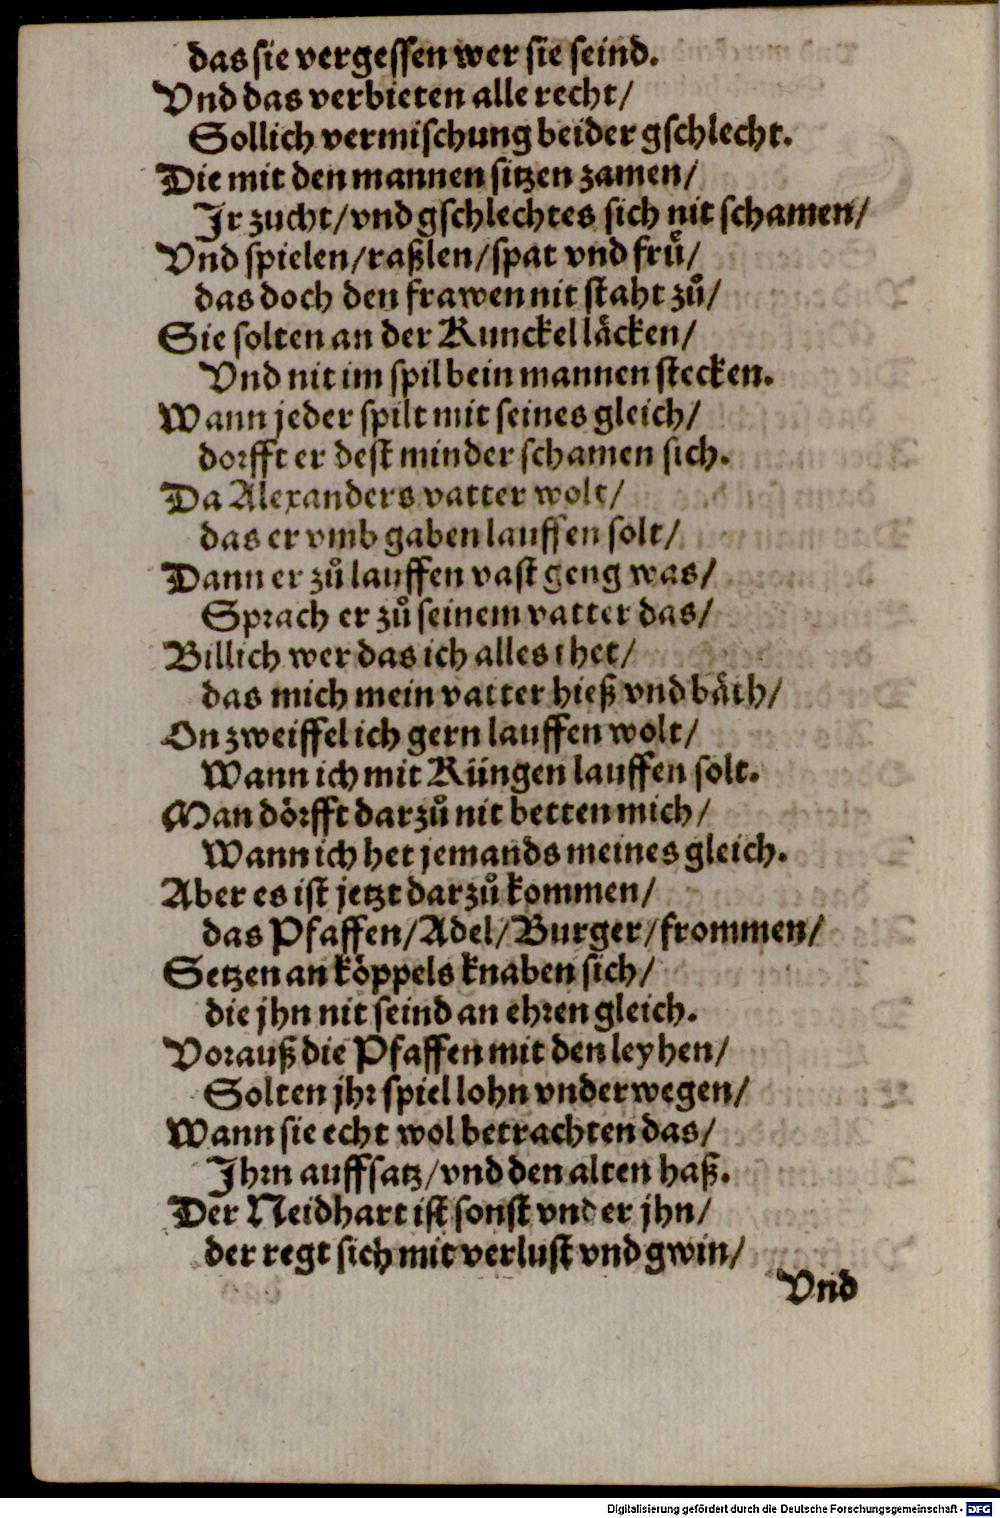 das sie vergessen wer sie seind.
Vnd das verbieten alle recht/
Sollich vermischung beider gschlecht.
Die mit den mannen sitzen zamen/
Jr zucht/vnd gschlechtes sich nit schamen/
Vnd spielen/raßlen/spat vnd fruͤ/
das doch den frawen nit staht zuͦ/
Sie solten an der Kunckel laͤcken/
Vnd nit im spil bein mannen stecken.
Wann jeder spilt mit seines gleich/
dorfft er dest minder schamen sich.
Da Alexanders vatter wolt/
das er vmb gaben lauffen solt/
Dann er zuͦ lauffen vast geng was/
Sprach er zuͦ seinem vatter das/
Billich wer das ich alles thet/
das mich mein vatter hieß vnd baͤth/
On zweiffel ich gern lauffen wolt/
Wann ich mit Küngen lauffen solt.
Man doͤrfft darzuͦ nit betten mich/
Wann ich het jemands meines gleich.
Aber es ist jetzt darzuͦ kommen/
das Pfaffen/Adel/Burger/frommen/
Setzen an koͤppels knaben sich/
die jhn nit seind an ehren gleich.
Vorauß die Pfaffen mit den leyhen/
Solten jhr spiel lohn vnderwegen/
Wann sie echt wol betrachten das/
Jhrn auffsatz/vnd den alten haß.
Der Neidhart ist sonst vnder jhn/
der regt sich mit verlust vnd gwin/
Vnd
Digitalisierung gefördert durch die Deutsche Forschungsgemeinschaft - DFG